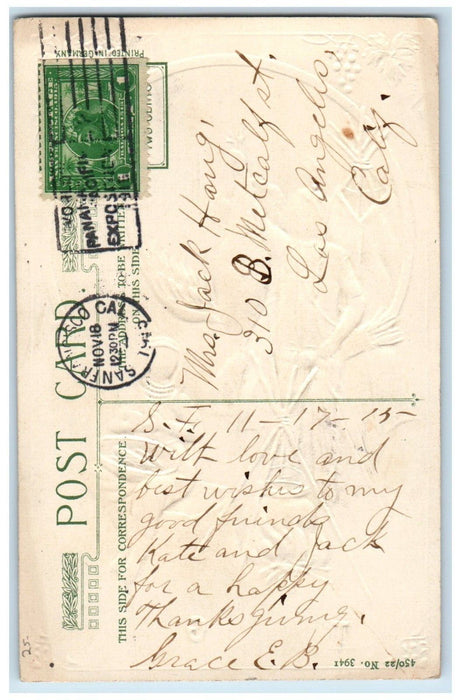 PRINTED IN GERMANY
TWO CENTS
PANAMA
PACIFIC
EXPOS
SAN FRANCISCO, CAL.
NOV 18
12 30 PM
POST CARD.
THIS SIDE FOR CORRESPONDENCE
THE ADDRESS TO BE WRITTEN
ON THIS SIDE
Mrs. Jack Hong,
310 B. Metcalf st.
Los Angeles,
Calif.
S. F. 11-17-15-
With love and
best wishes to my
good friends
Kate and Jack
for a happy
Thanksgiving.
Grace E. B.
450/22 No. 3941
25-